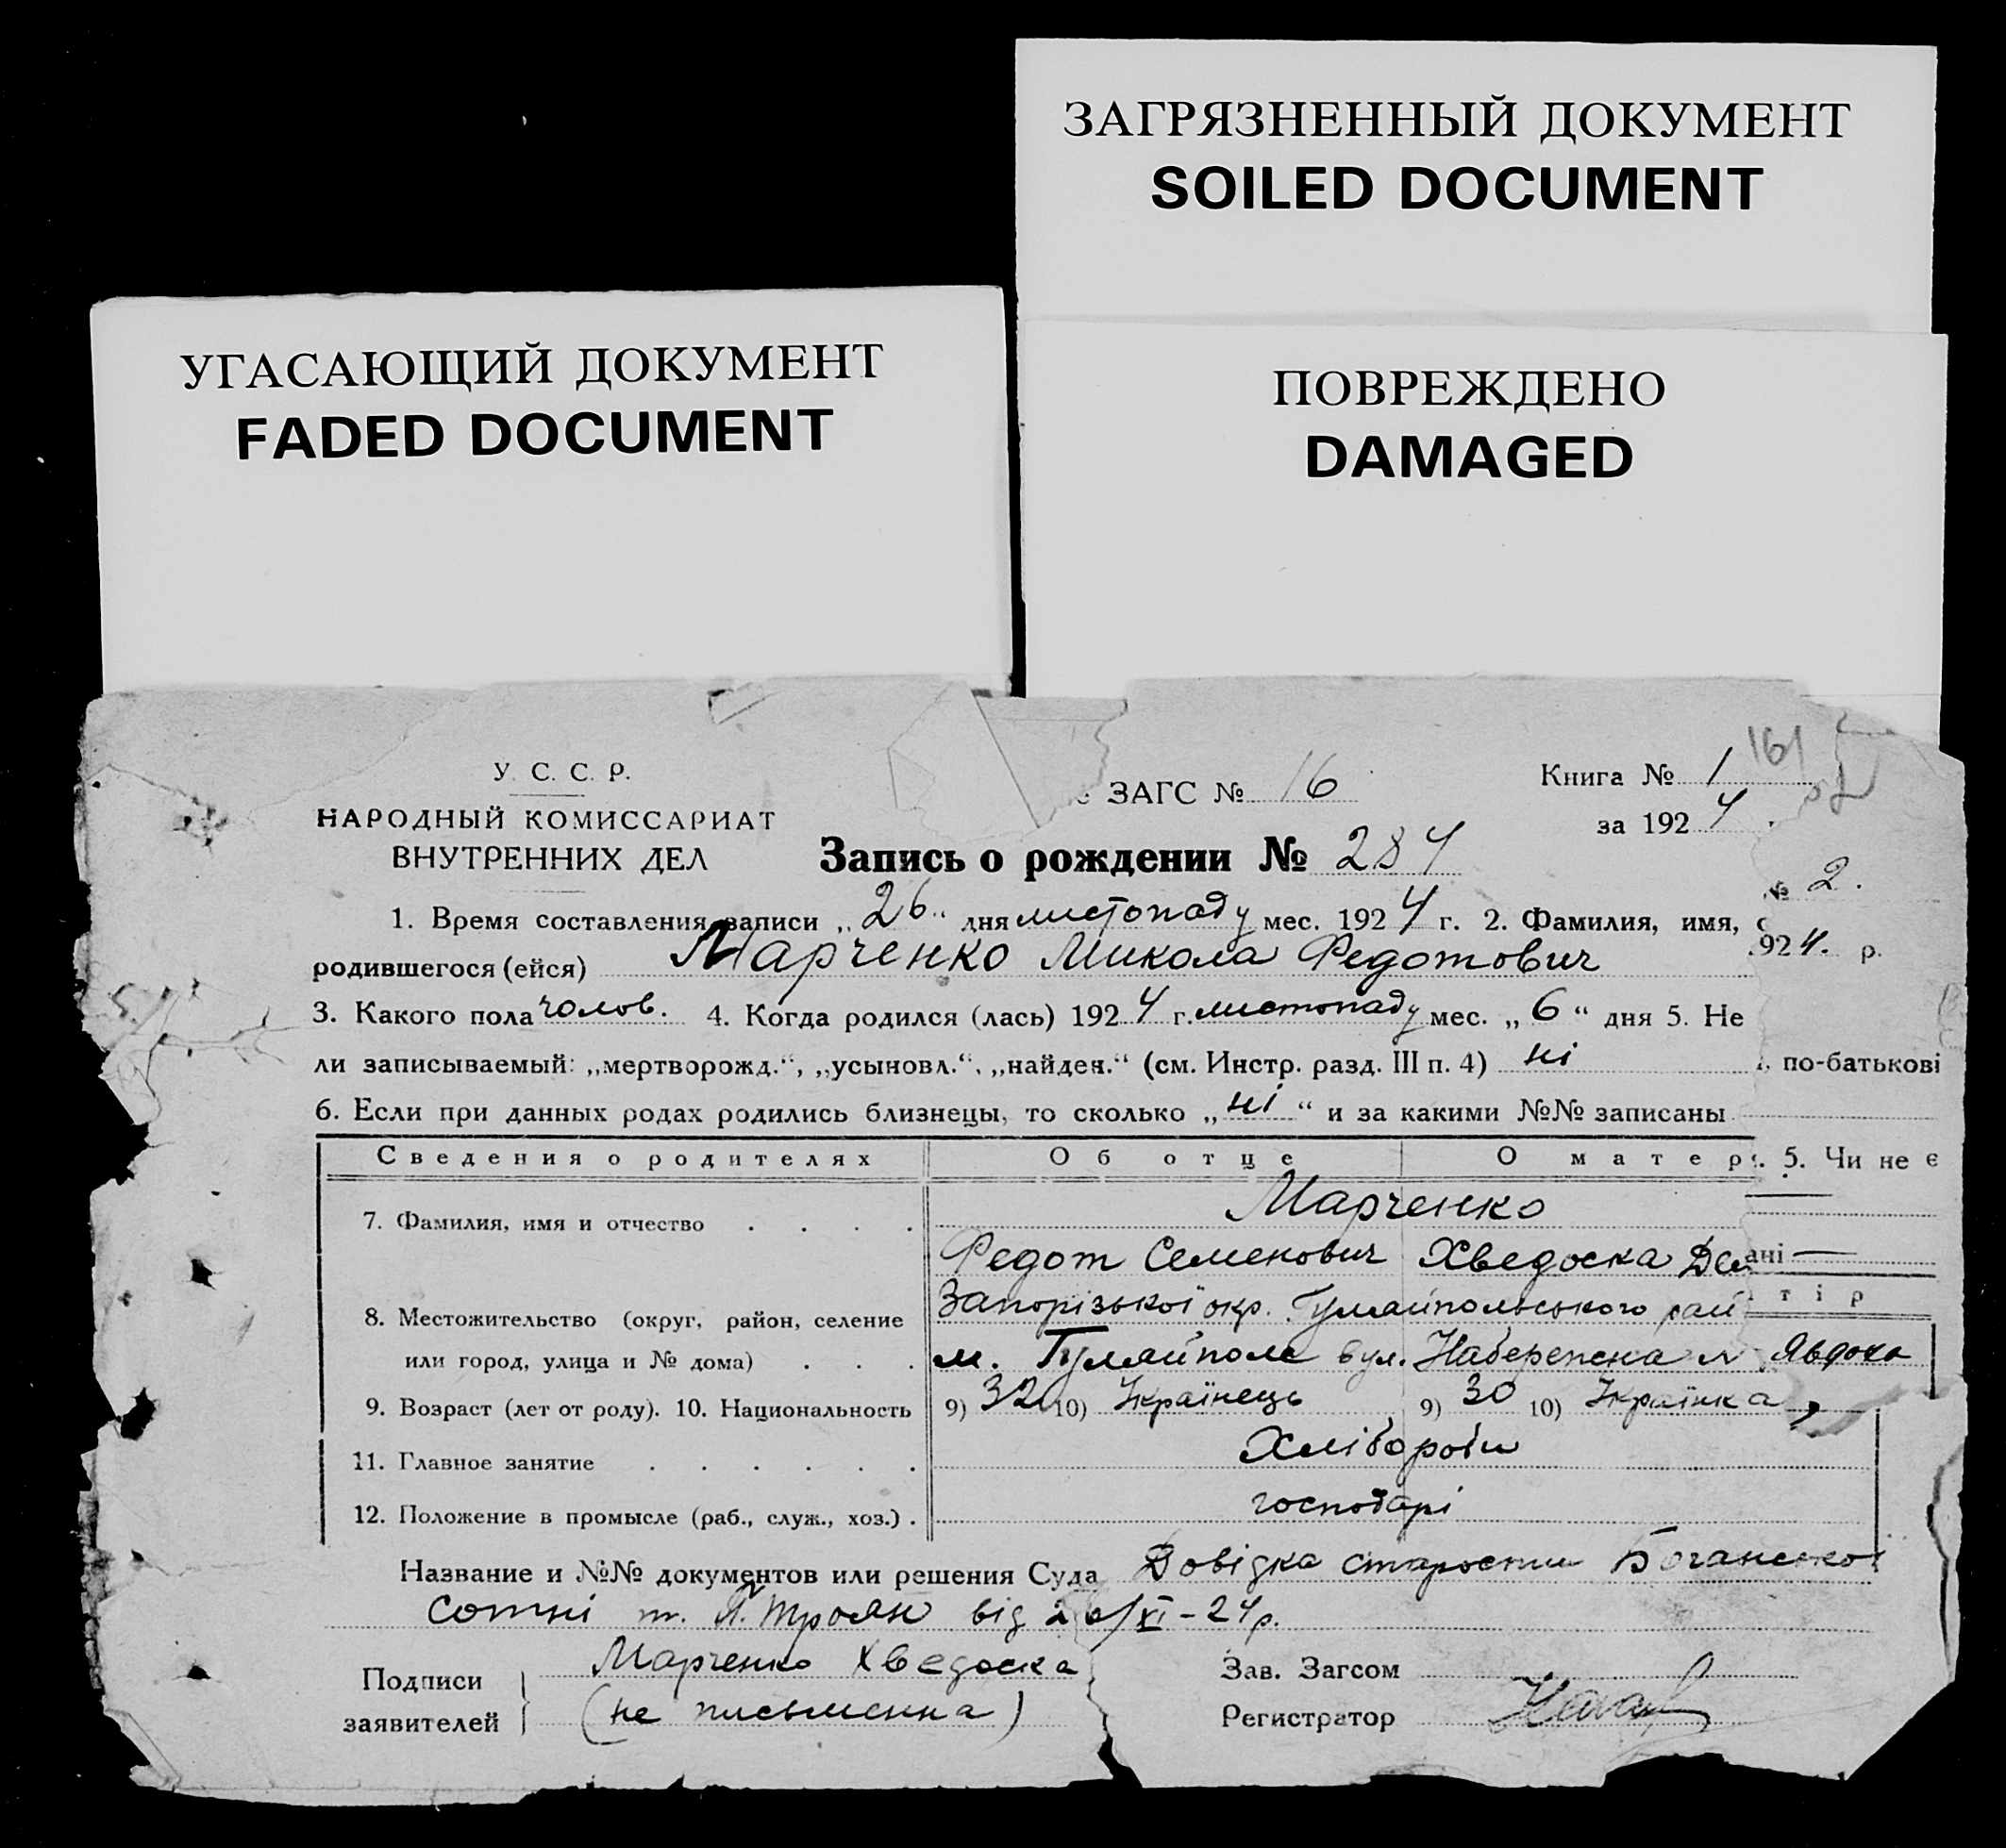 ЗАГРЯЗНЕННЫЙ ДОКУМЕНТ
SOILED DOCUMENT
УГАСАЮЩИЙ ДОКУМЕНТ
FADED DOCUMENT
ПОВРЕЖДЕНО
DAMAGED
161
У. С. С. Р.
НАРОДНЫЙ КОМИССАРИАТ
ВНУТРЕННИХ ДЕЛ
ЗАГС № 16
Книга № 1
за 1924
Запись о рождении № 284
№ 2.
1. Время составления записи „26“ дня листопаду мес. 1924 г. 2. Фамилия, имя,
родившегося (ейся) Марченко Микола Федотович
924. р.
3. Какого пола чолов. 4. Когда родился (лась) 1924 г. листопаду мес. „6“ дня 5. Не
ли записываемый: „мертворожд.“, „усыновл.“, „найден.“ (см. Инстр. разд. III п. 4) ні
по-батькові
6. Если при данных родах родились близнецы, то сколько „ні“ и за какими №№ записаны
Сведения о родителях Об отце О матер
5. Чи не є
7. Фамилия, имя и отчество . . . . Марченко
Федот Семенович Хведоска
ані —
8. Местожительство (округ, район, селение Запорізької окр. Гуляйпольського рай
тір
или город, улица и № дома) . . . м. Гуляйполе вул. Набережна
Явдоха
9. Возраст (лет от роду). 10. Национальность 9) 32 10) Українець 9) 30 10) Українка
11. Главное занятие . . . . . . Хлібороби
12. Положение в промысле (раб., служ., хоз.) . господарі
Название и №№ документов или решения Суда Довідка старости
сотні т. П. Троян від 26/XI-24р.
Подписи
заявителей
Марченко Хведоска
(не письменна)
Зав. Загсом
Регистратор